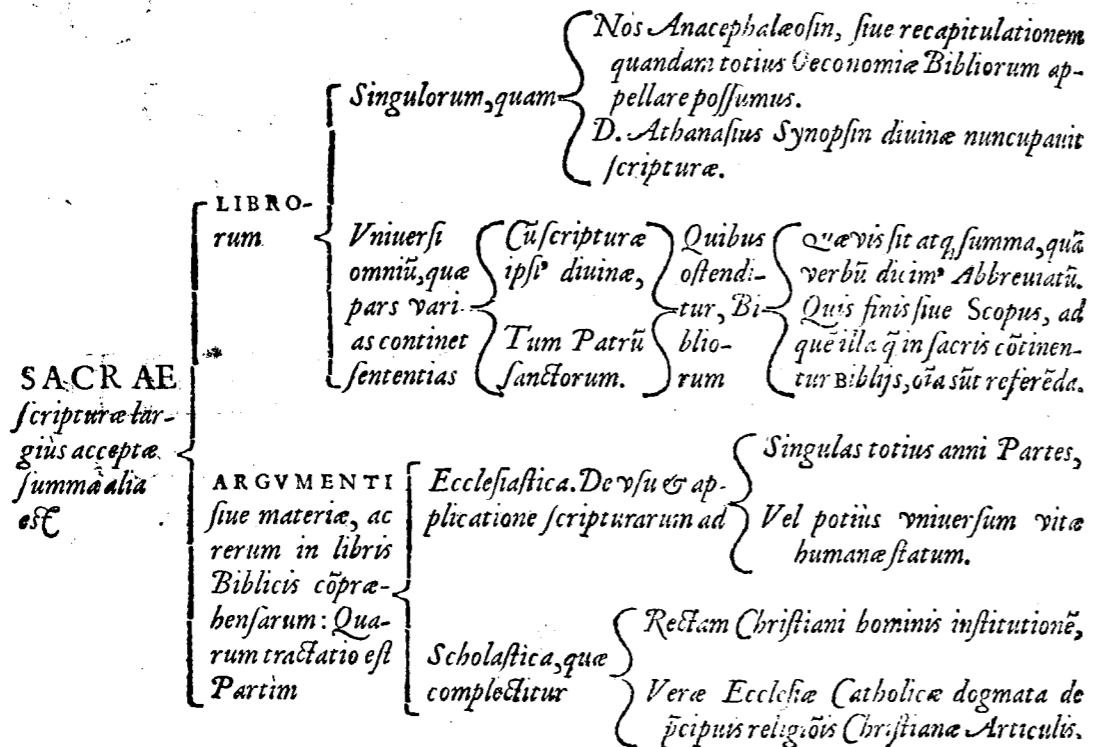 SACRAE
scripturæ lar-
giùs acceptæ
summa alia
est
LIBRO-
rum
Singulorum, quam
Nos Anacephalæosin, siue recapitulationem
quandam totius Oeconomiæ Bibliorum ap-
pellare possumus.
D. Athanasius Synopsin diuinæ nuncupauit
scripturæ.
Vniuersi
omniũ, quæ
pars vari-
as continet
sententias
Cũ scripturæ
ipsi⁹ diuinæ,
Tum Patrũ
sanctorum.
Quibus
ostendi-
tur, Bi-
blio-
rum
Quævis sit atq; summa, quã
verbũ dicim⁹ Abbreuiatũ.
Quis finis siue Scopus, ad
quẽ illa q̃ in sacris cõtinen-
tur Biblijs, oĩa sũt referẽda.
ARGVMENTI
siue materiæ, ac
rerum in libris
Biblicis cõpræ-
hensarum: Qua-
rum tractatio est
Partim
Ecclesiastica. De vsu & ap-
plicatione scripturarum ad
Singulas totius anni Partes,
Vel potius vniuersum vitæ
humanæ statum.
Scholastica, quæ
complectitur
Rectam Christiani hominis institutionẽ,
Veræ Ecclesiæ Catholicæ dogmata de
p̃cipuis religiõis Christianæ Articulis.